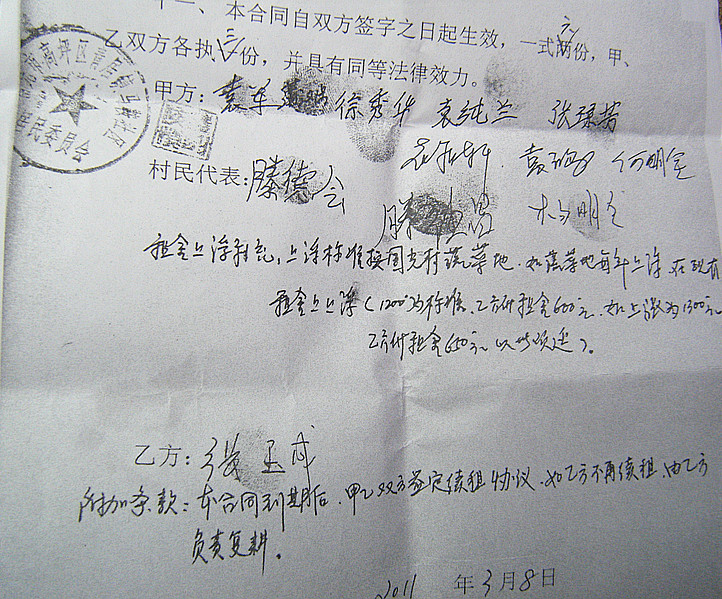 十一、本合同自双方签字之日起生效，一式六份，甲、
乙双方各执三份，并具有同等法律效力。
高坪区
民委员会
甲方：袁军 徐秀华 袁纯兰 张琼芳
何明金
村民代表：滕德会
滕 昌 杨明全
租金上浮 ，上浮标准按国光村蔬菜地，如蔬菜地每年上浮，在现有
租金上上浮（1200为标准，乙方付租金600元，如上涨为1300元
乙方付租金650元以此类推）。
乙方：张玉成
附加条款：本合同到期后，甲乙双方签定续租协议，如乙方不再续租，由乙方
负责复耕。
2011年3月8日